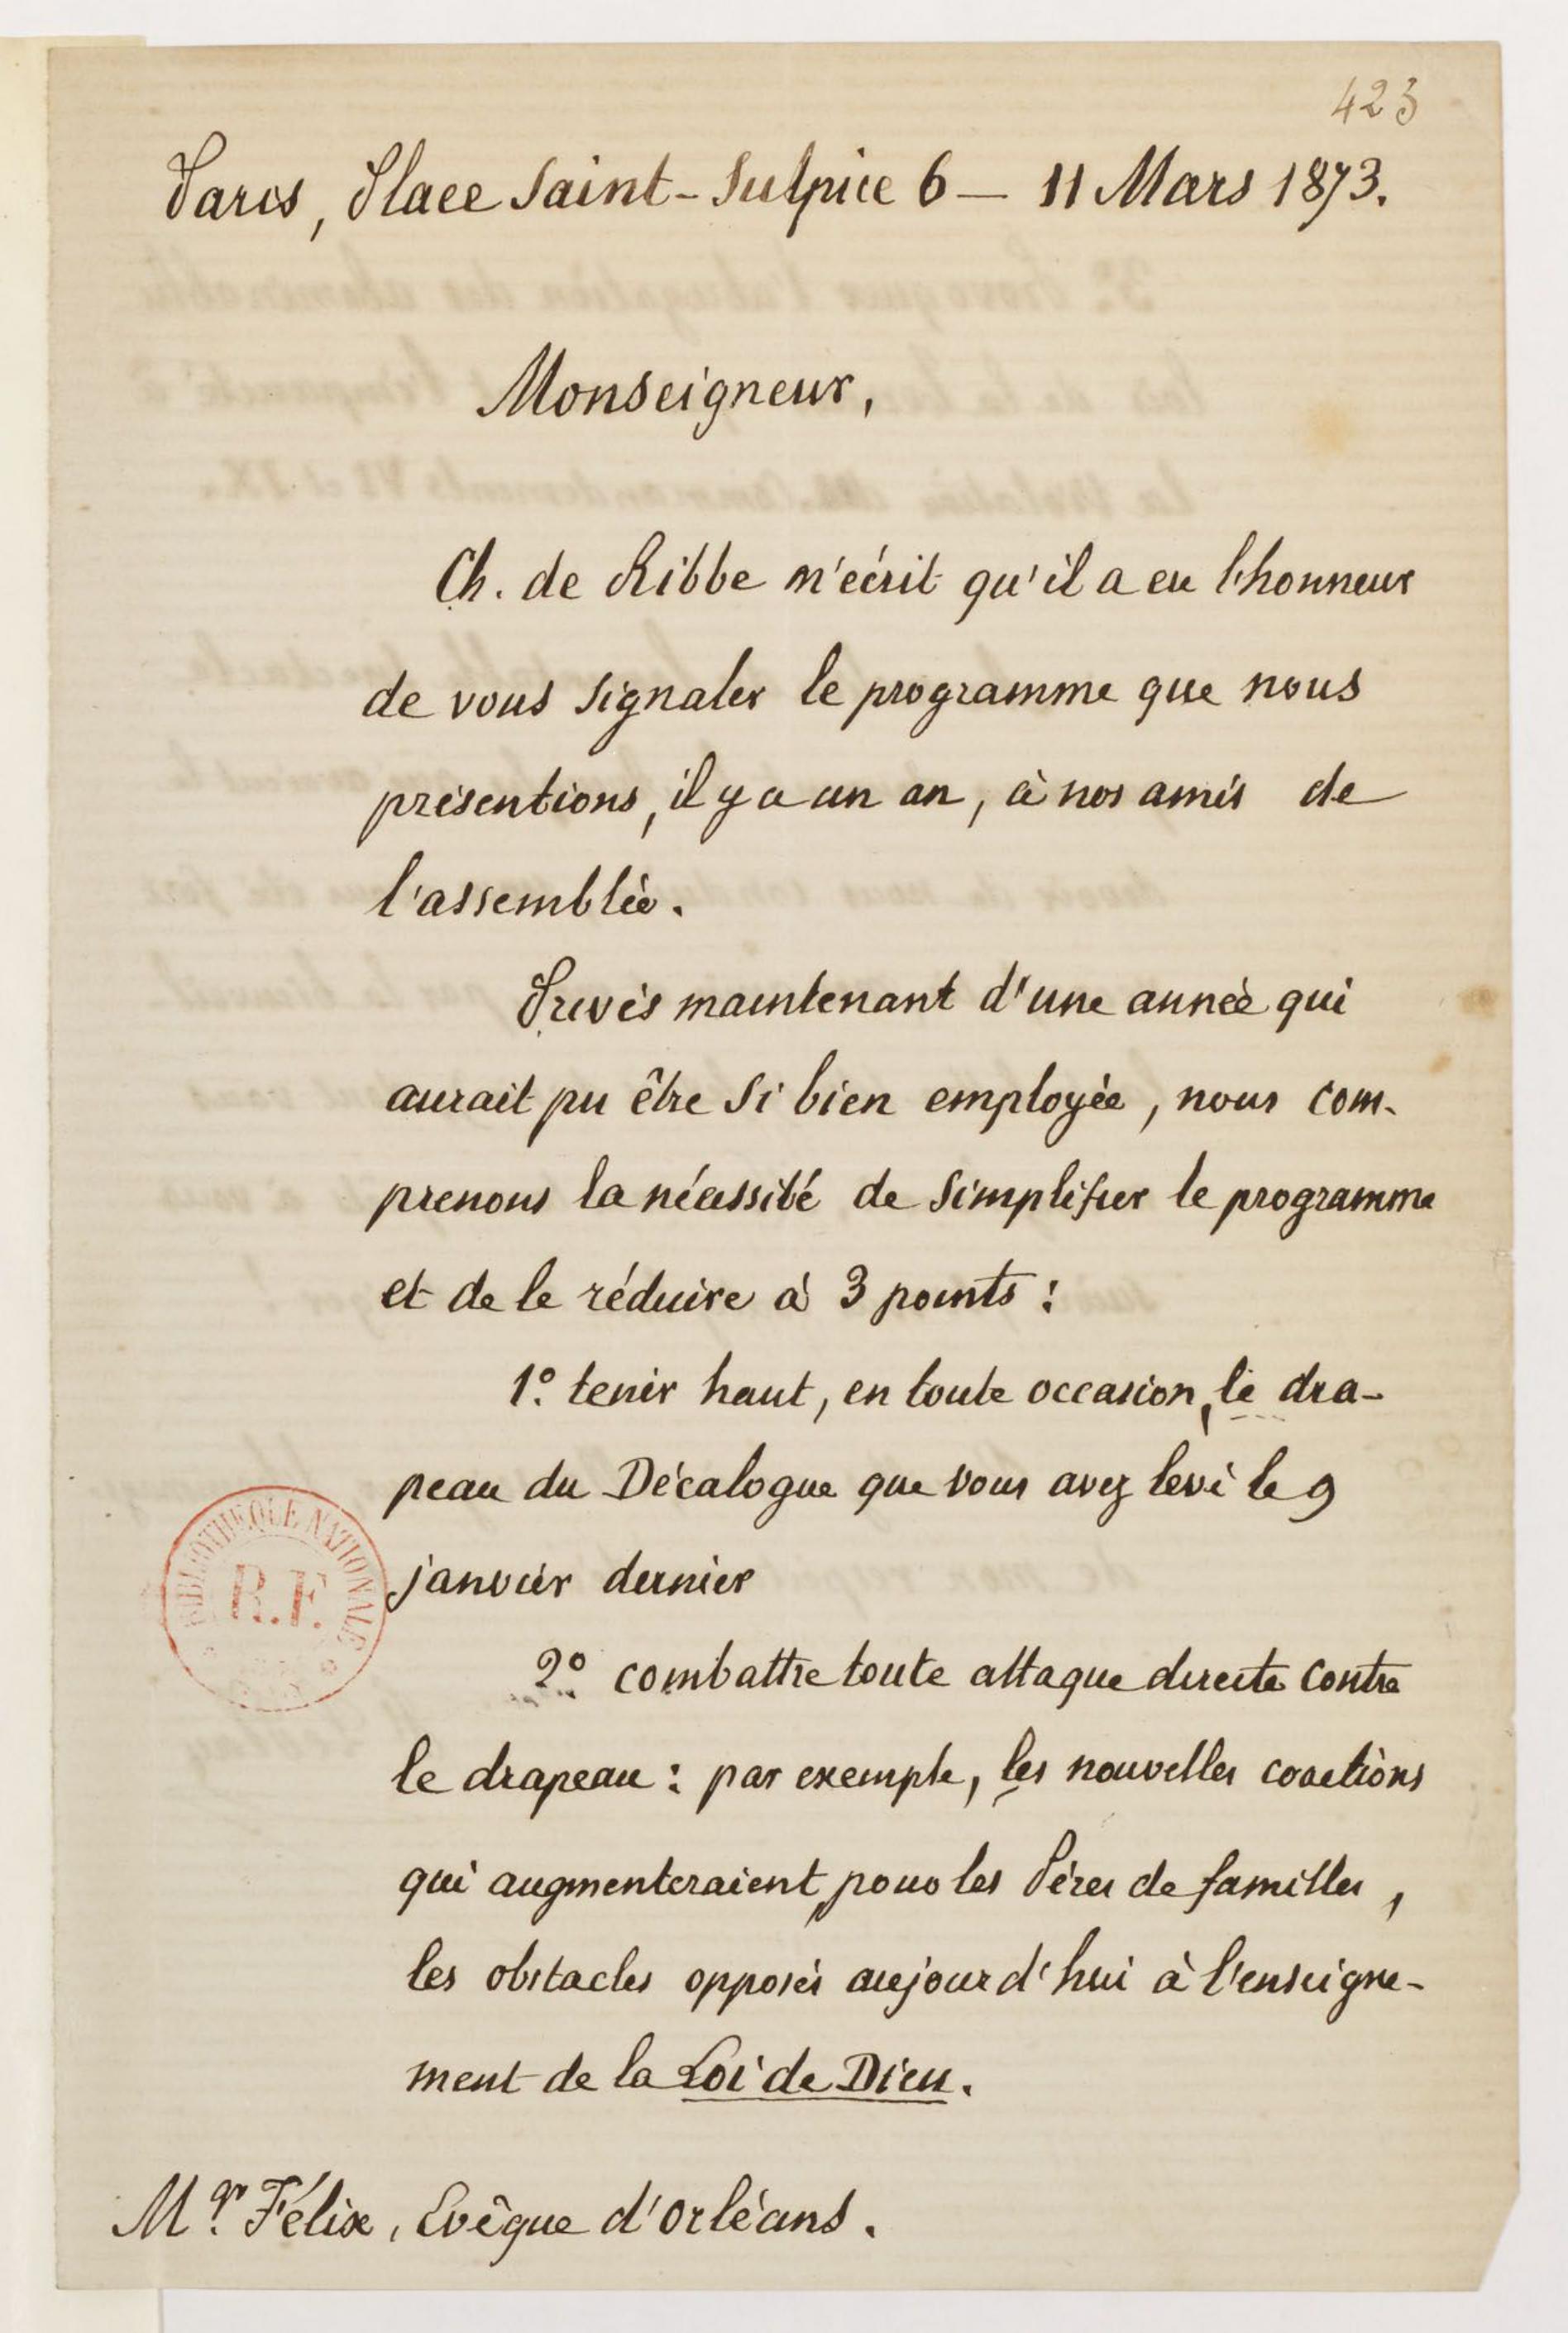 423
Paris, Place Saint-Sulpice 6 — 11 Mars 1873.
Monseigneur,
Ch. de Ribbe m'écrit qu'il a eu l'honneur
de vous signaler le programme que nous
présentions, il y a un an, à nos amis de
l'assemblée.
Privés maintenant d'une année qui
aurait pu être si bien employée, nous com-
prenons la nécessité de simplifier le programme
et de le réduire à 3 points :
1º. tenir haut, en toute occasion, le dra-
peau du Décalogue que vous avez levé le 9
janvier dernier
2º. combattre toute attaque directe contre
le drapeau : par exemple, les nouvelles coactions
qui augmenteraient, pour les Pères de familles,
les obstacles opposés aujourd'hui à l'enseigne-
ment de la Loi de Dieu.
BIBLIOTHEQUE NATIONALE
R.F.
Mgr. Félix, Evêque d'Orléans.